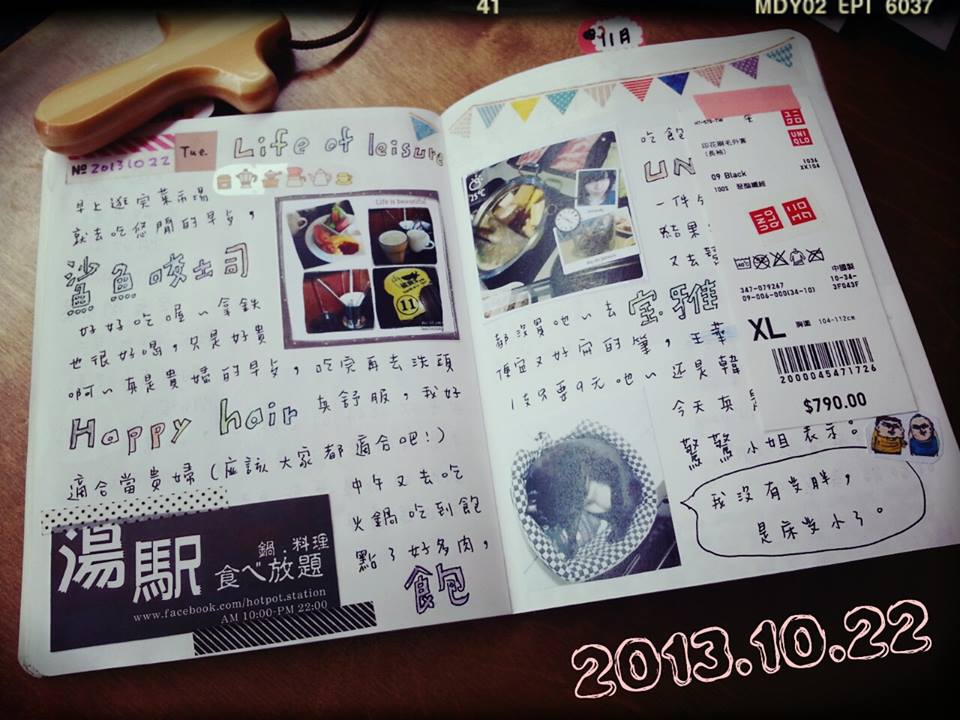 41
MDY02 EPT 6037
11月
№ 20131022
Tue.
Life of leisure
早上逛完菜市場
就去吃悠閒的早午,
鯊魚咬土司
好好吃喔~拿鐵
也很好喝,只是好貴
啊~真是貴婦的早午,吃完再去洗頭
Happy hair 真舒服,我好
適合當貴婦(应該大家都適合吧!)
中午又去吃
火鍋吃到飽
點了好多肉,
飽
Life is beautiful
11
湯駅
鍋.料理
食べ放題
www.facebook.com/hotpot.station
AM 10:00-PM 22:00
吃飽
UN
一件
結果
又去
都沒買吧~去宝雅
便宜又好寫的筆,
1支只要9元吧~還是韓
今天真
驚驚小姐表示:
我沒有變胖,
是床變小了。
25°C
印花刷毛外套
(長袖)
09 Black
100%
UNIQLO
中國製
347-079267
09-006-000(34-10)
10-34-
3F043F
XL
胸圍 104-112cm
2000045471726
$790.00
2013.10.22